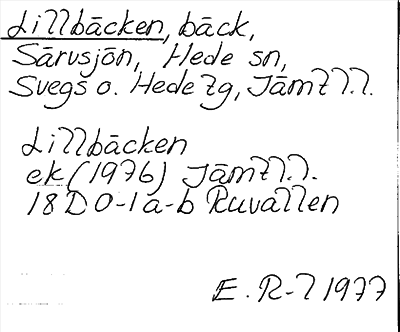 Lillbäcken, bäck,
Särvsjön, Hede sn,
Svegs o. Hede tg, Jämtl.l.
Lillbäcken
ek (1976) Jämtl.l.
18D 0-1a-b Ruvallen
E. R-l 1977